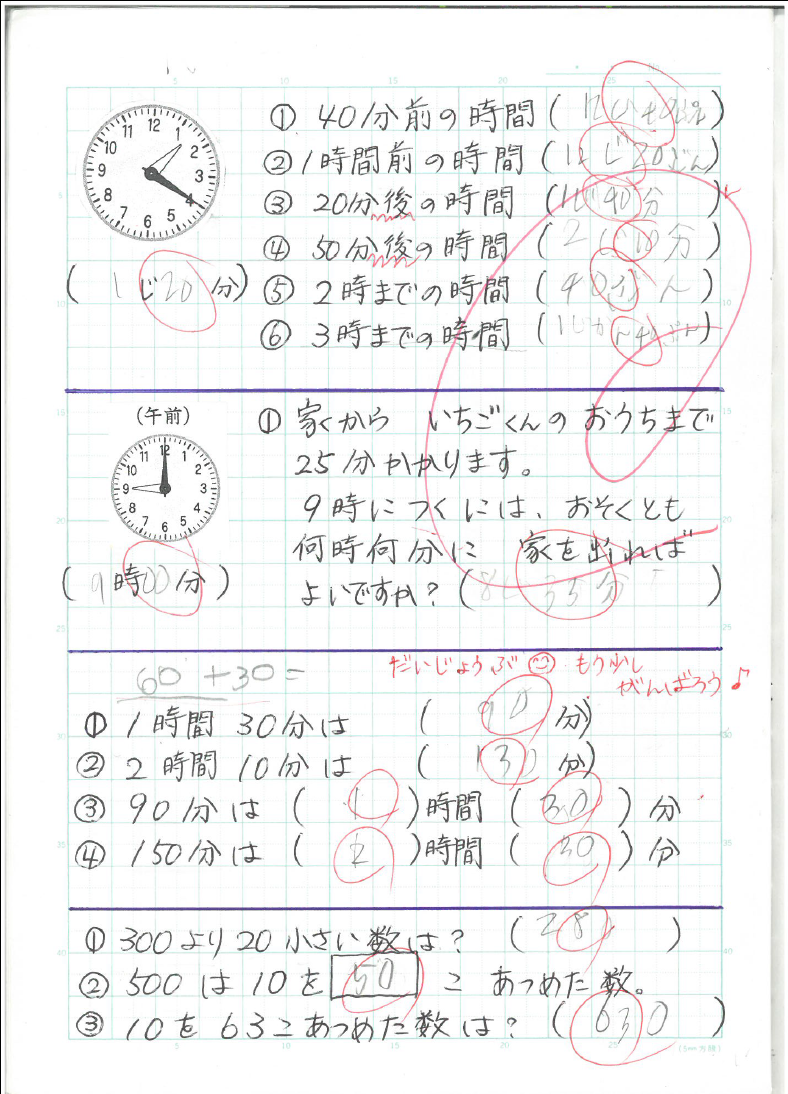 ① 40分前の時間 (12じ40ぷん)
② 1時間前の時間 (12じ20ぷん)
③ 20分後の時間 (1じ40分)
④ 50分後の時間 (2じ10分)
(1じ20分)
⑤ 2時までの時間 (40ぷん)
⑥ 3時までの時間 (1じかん40ぷん)
(午前)
(9時00分)
① 家から いちごくんの おうちまで
25分かかります。
9時につくには、おそくとも
何時何分に 家を出れば
よいですか? (8じ35分)
だいじょうぶ もう少し
がんばろう♪
60+30=
① 1時間 30分は (90分)
② 2時間 10分は (130分)
③ 90分は (1)時間 (30)分
④ 150分は (2)時間 (30)分
① 300より20小さい数は? (28)
② 500は10を 50 こ あつめた数。
③ 10を63こあつめた数は? (630)